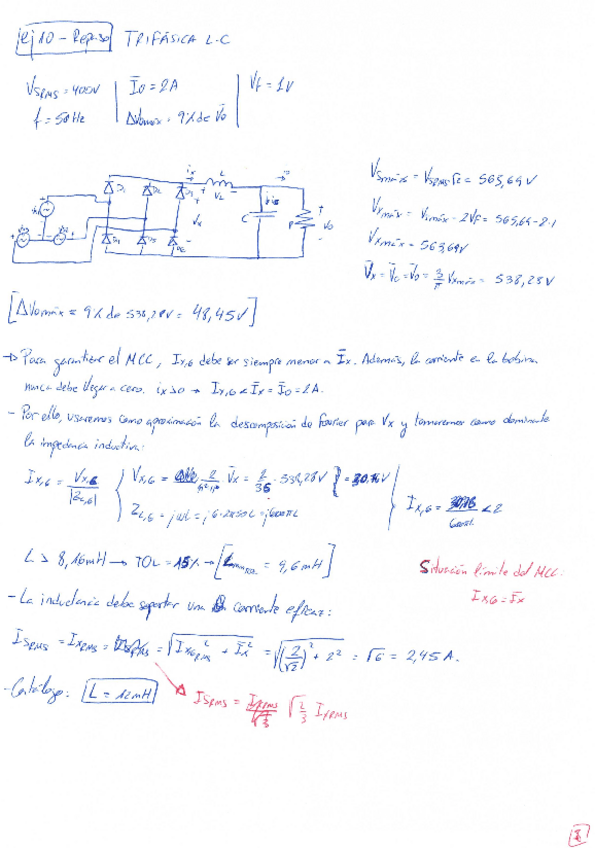 ej 10 - Repaso TRIFÁSICA L-C
VSRMS = 400V
f = 50Hz
Īo = 2A
ΔVomáx = 9% de V̄o
Vf = 1V
VSmáx = VSRMS √2 = 565,69V
VXmáx = VSmáx - 2Vf = 565,69 - 2·1
VXmáx = 563,69V
V̄x = V̄c = V̄o = 3/π VXmáx = 538,28V
D1 D2 D3
ix L VL
C
Vx
Vo
[ΔVomáx = 9% de 538,28V = 48,45V]
→ Para garantizar el MCC, Ix,6 debe ser siempre menor a Īx. Además, la corriente en la bobina
nunca debe llegar a cero. ix>0 → Ix,6 < Īx = Īo = 2A.
- Por ello, usaremos como aproximación la descomposición de Fourier para Vx y tomaremos como dominante
la impedancia inductiva:
Ix,6 = Vx,6 / |ZL,6|
Vx,6 = V̄x = 2/36 · 538,28V = 30,76V
ZL,6 = jωL = j6·2π50L = j600πL
Ix,6 = / 600πL < 2
L > 8,16mH → TOL = 15% → [ = 9,6mH]
Situación límite del MCC:
Ix,6 = Īx
- La inductancia debe soportar una corriente eficaz:
ISRMS = IxRMS = = √(Ix6RMS² + Īx²) = √((2/√2)² + 2²) = √6 = 2,45A.
- Catálogo: L = 12mH
ISRMS = √2/3 IxRMS